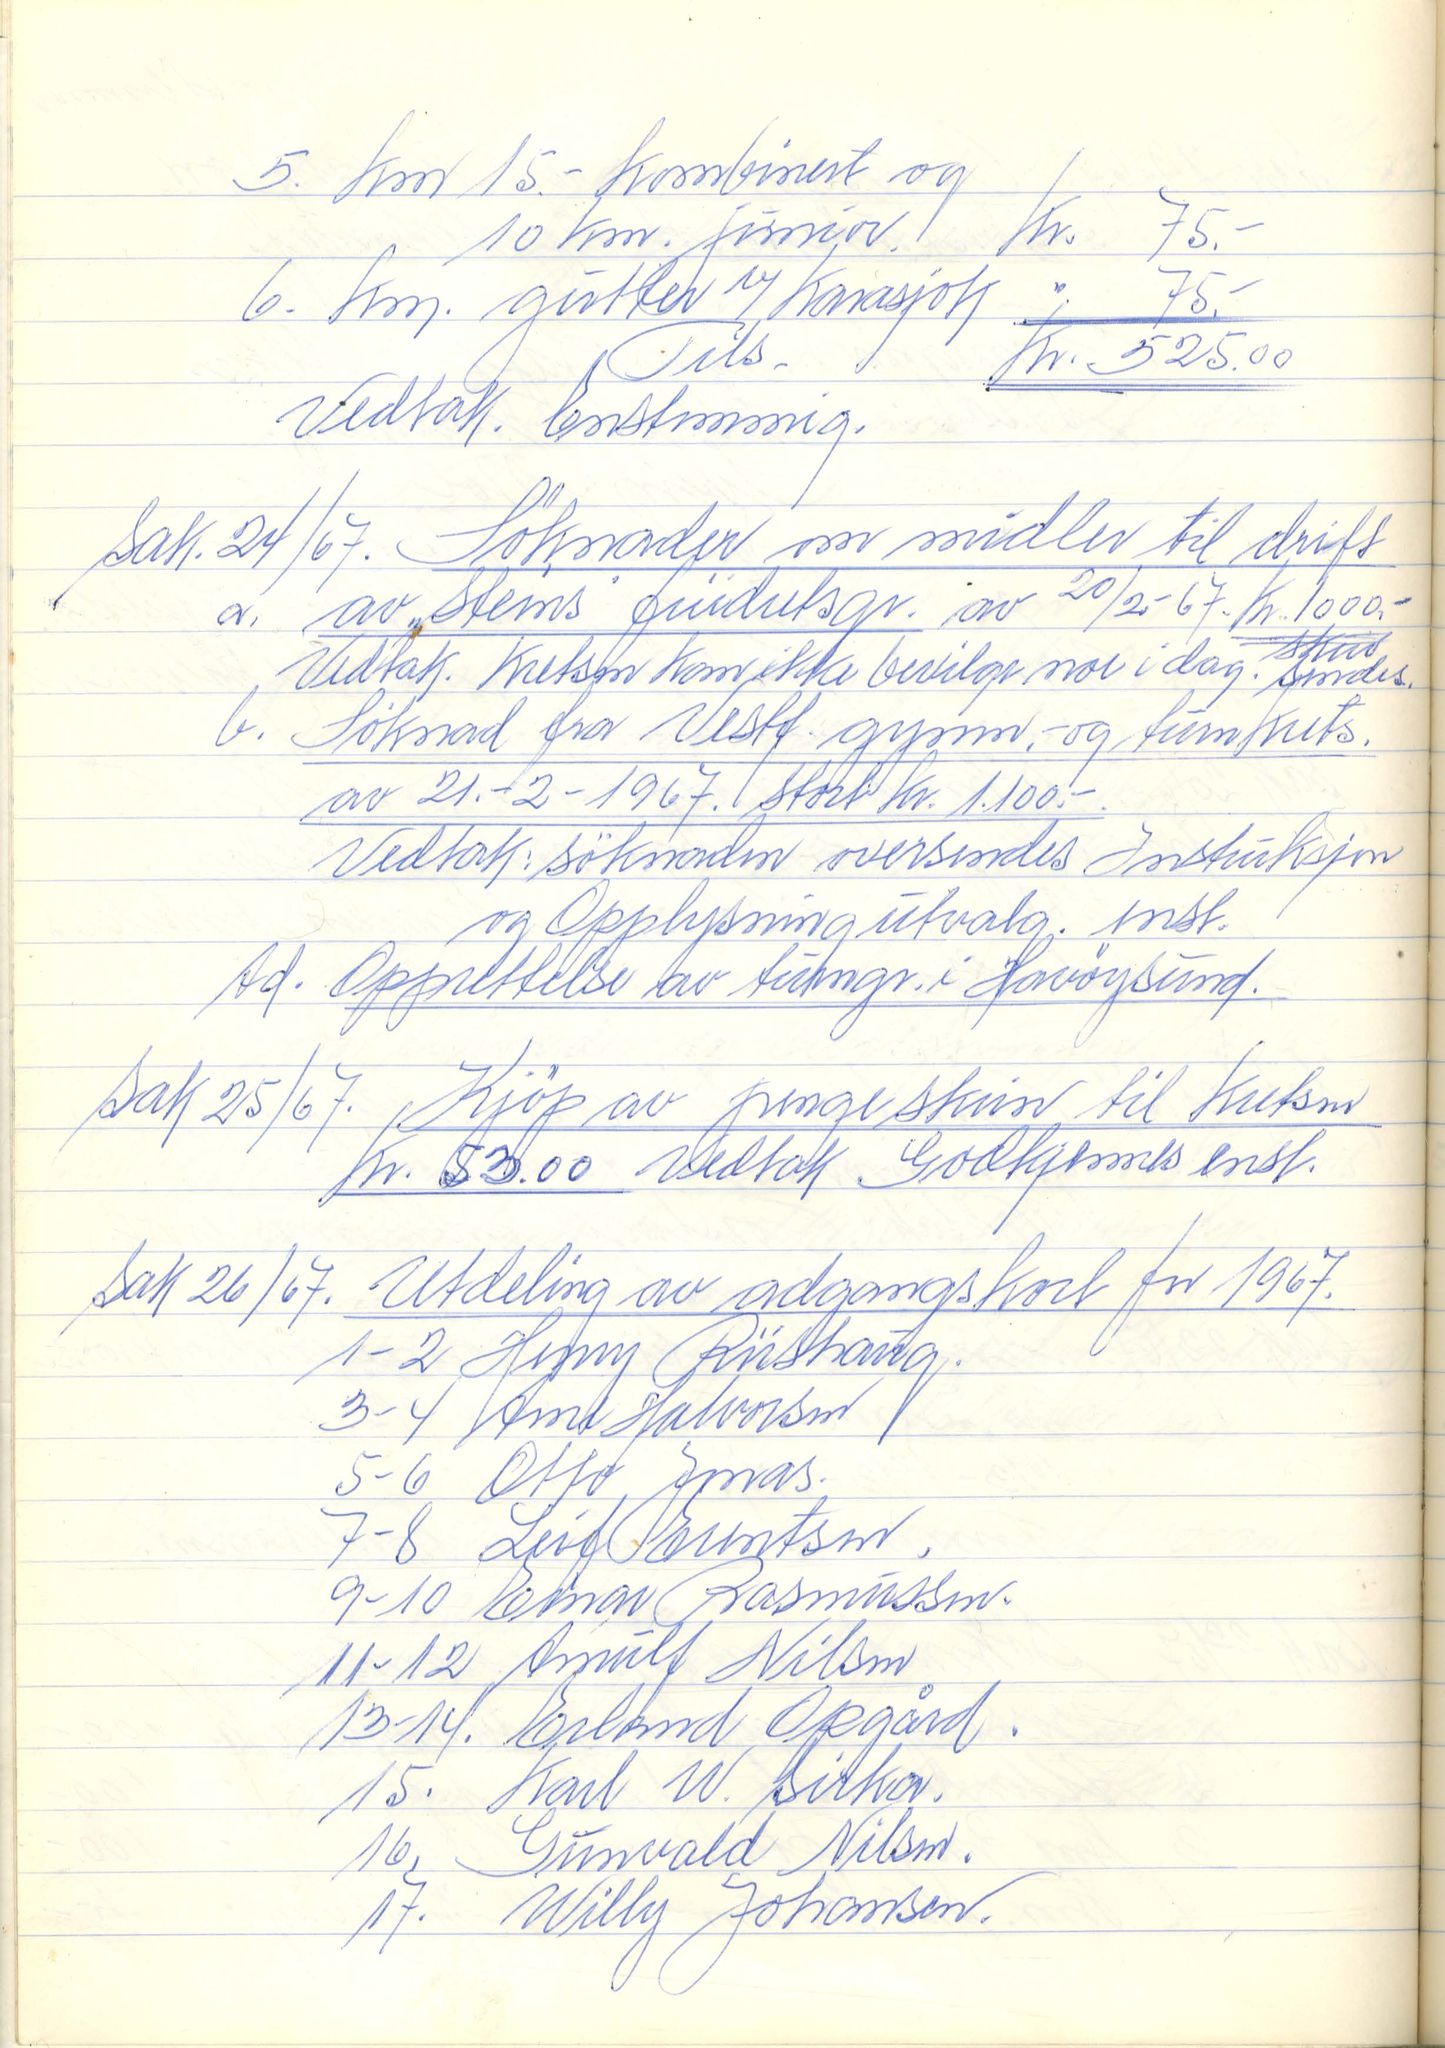 5. Km 15.- Kombinert og
10 Km. junior. Kr. 75.-
6. Km. gutter i/ Karasjok " 75.-
Tils. Kr. 525.00
Vedtak. Enstemmig.
Sak. 24/67. Söknader om midler til drift
a. av "Steins" friidrtsgr. av 20/2-67. Kr. 1000.-
Vedtak. Kretsen kan ikke bevilge noe i dag.
sendes.
b. Söknad fra Vestf. gymn.- og turnkrets.
av 21.-2-1967. Stort kr. 1.100.-
Vedtak: söknaden oversendes Instruksjon
og Opplysningutvalg. enst.
Ad. Opprettelse av turngr. i Havöysund.
Sak 25/67. Kjöp av pengeskrin til Kretsen
Kr. 53.00 Vedtak Godkjennes enst.
Sak 26/67. Utdeling av adgangskort for 1967.
1-2 Henry Riishaug.
3-4 Arne Halvorsen
5-6 Otto Jonas.
7-8 Leif Berntsen.
9-10 Einar Rasmussen.
11-12 Arnulf Nilsen
13-14. Erland Opgård.
15. Karl W. Sirka.
16. Gunvald Nilsen.
17. Willy Johansen.